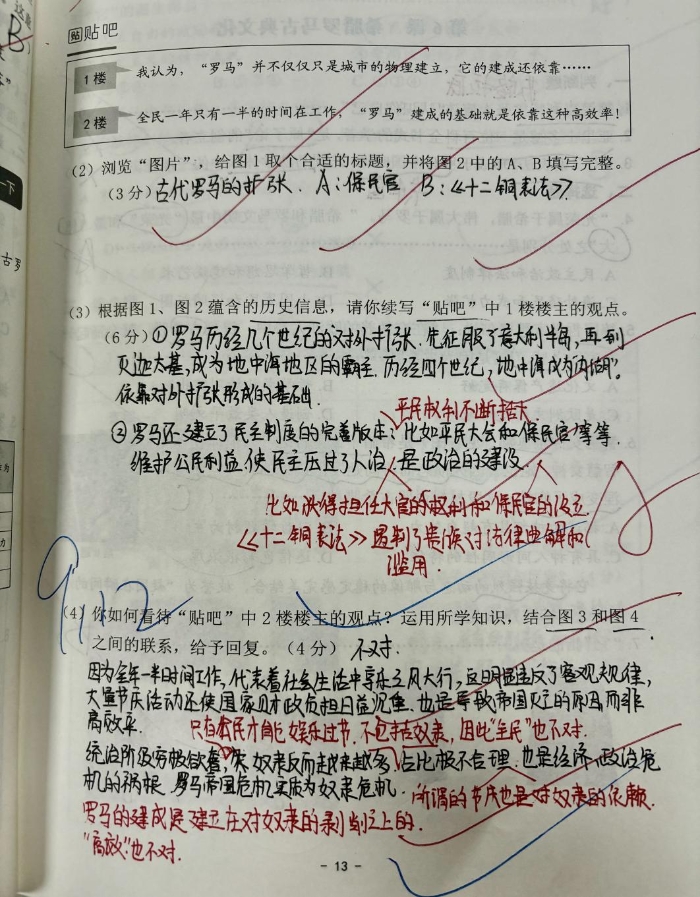 贴 贴吧
1楼 我认为，“罗马”并不仅仅只是城市的物理建立，它的建成还依靠……
2楼 全民一年只有一半的时间在工作，“罗马”建成的基础就是依靠这种高效率！
(2) 浏览“图片”，给图1取个合适的标题，并将图2中的A、B填写完整。
(3分) 古代罗马的扩张. A：保民官 B：《十二铜表法》
(3) 根据图1、图2蕴含的历史信息，请你续写“贴吧”中1楼楼主的观点。
(6分) ①罗马历经几个世纪的对外扩张. 先征服了意大利半岛，再到
灭迦太基，成为地中海地区的霸主. 历经四个世纪，地中海成为“内湖”。
依靠对外扩张形成的基础.
平民权利不断扩大.
②罗马还建立了民主制度的完善版本：比如平民大会和保民官等等.
维护公民利益. 使民主压过了人治，是政治的建设.
比如获得担任大官的权利和保民官的设立
《十二铜表法》遏制了贵族对法律曲解和
滥用.
9.12
(4) 你如何看待“贴吧”中2楼楼主的观点？运用所学知识，结合图3和图4
之间的联系，给予回复。（4分） 不对.
因为全年一半时间工作，代表着社会生活中享乐之风大行，这明显违反了客观规律，
大量节庆活动还使国家财政负担日益沉重. 也是导致帝国灭亡的原因，而非
高效率.
只有公民才能娱乐过节. 不包括奴隶，因此“全民”也不对.
统治阶级穷极欲奢 奴隶反而越来越多，占比极不合理. 也是经济、政治危
机的祸根. 罗马帝国危机实质为奴隶危机.
所谓的节庆也是对奴隶的依赖.
罗马的建成是建立在对奴隶的剥削之上的.
“高效”也不对.
- 13 -